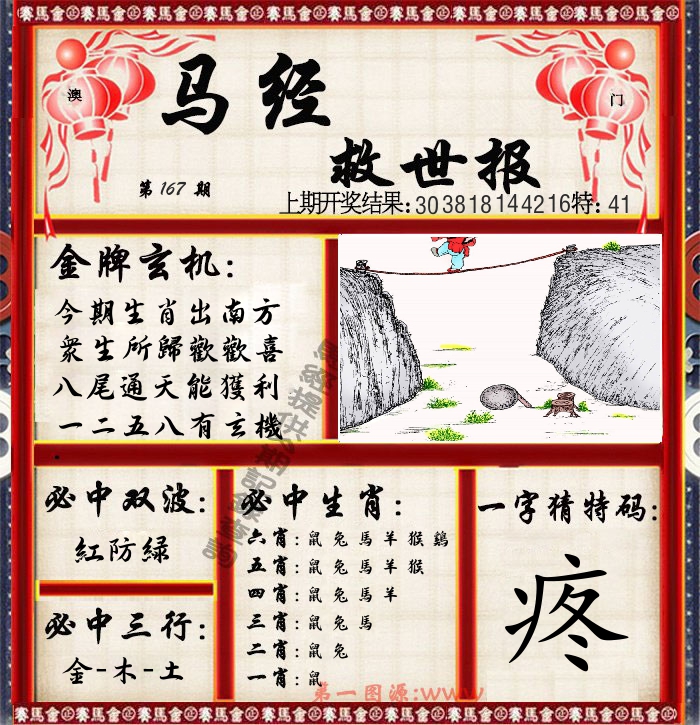 賽馬會㊣賽馬會㊣賽馬會㊣賽馬會㊣賽馬會㊣賽馬會㊣賽馬會㊣賽馬會
澳
门
马经
救世报
第167期
上期开奖结果:30 38 18 14 42 16特:41
金牌玄机:
今期生肖出南方
衆生所歸歡歡喜
八尾通天能獲利
一二五八有玄機
必中双波:
紅防緑
必中三行:
金-木-土
必中生肖:
六肖:鼠兔馬羊猴鷄
五肖:鼠兔馬羊猴
四肖:鼠兔馬羊
三肖:鼠兔馬
二肖:鼠兔
一肖:鼠
一字猜特码:
疼
第一图源:www